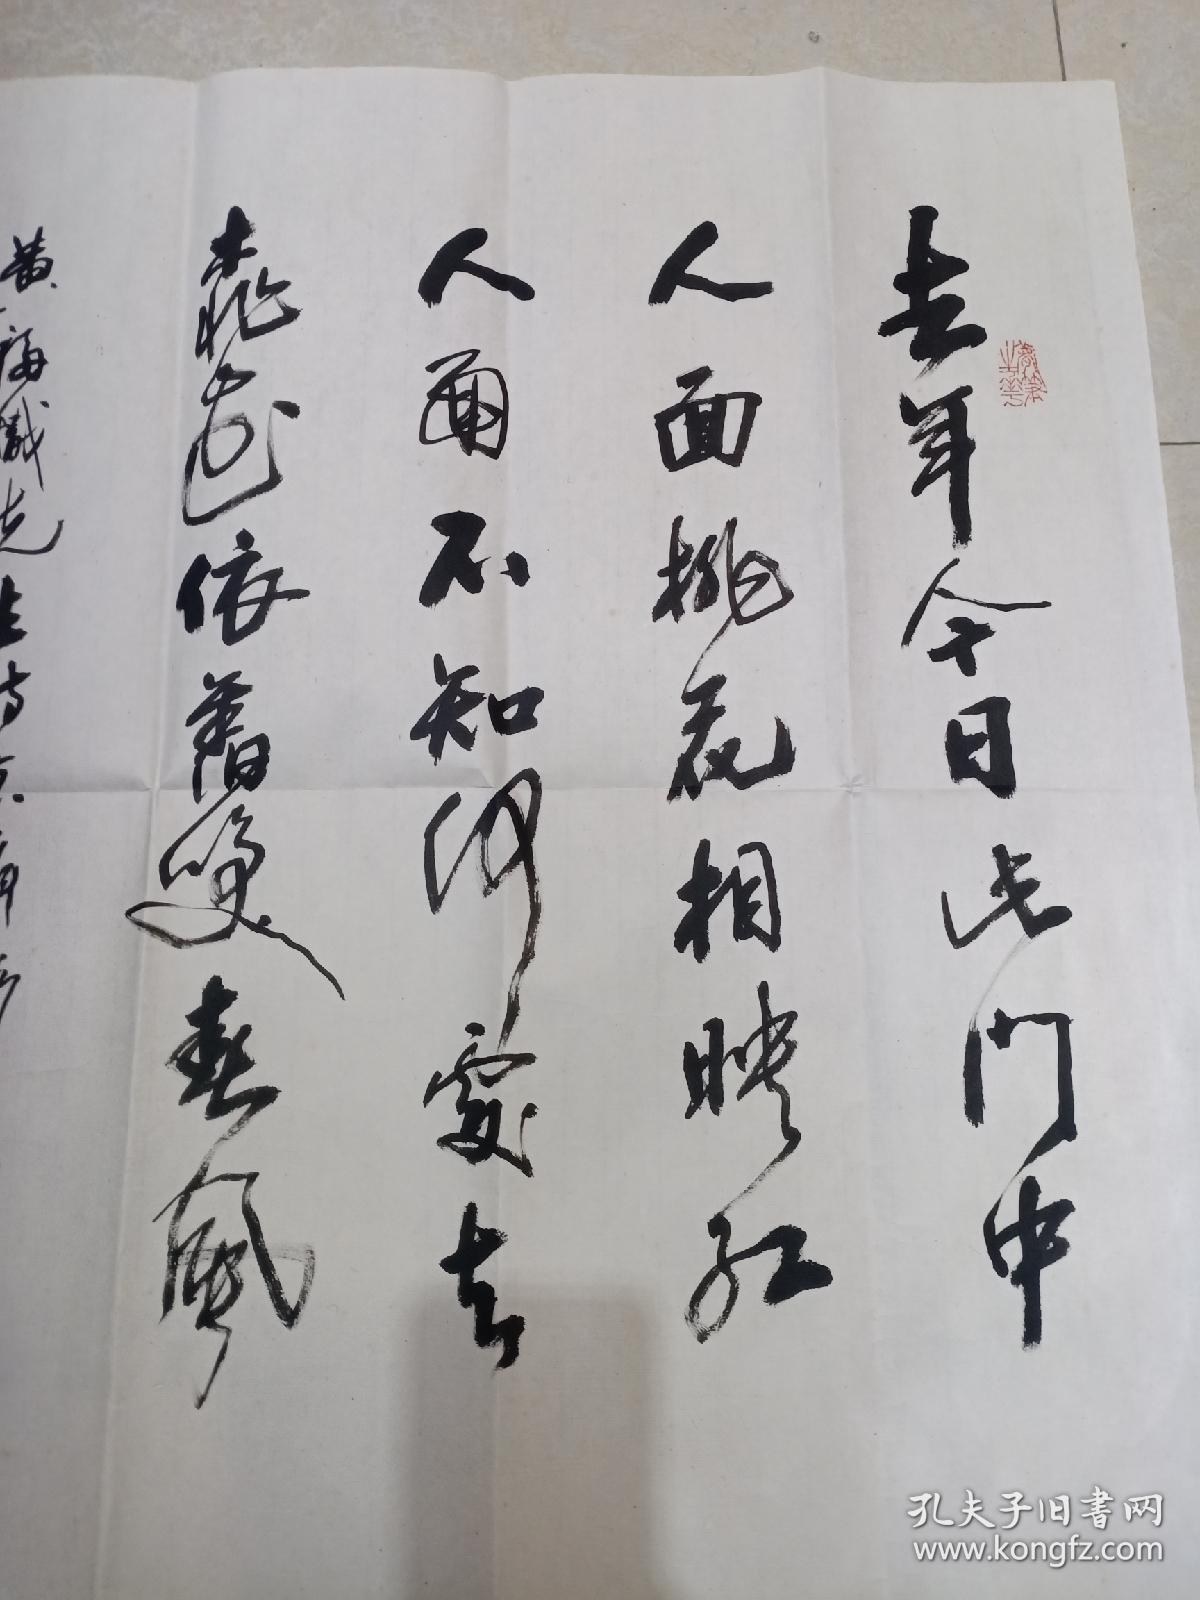 去年今日此门中
人面桃花相映红
人面不知何處去
桃花依舊笑春風
孔夫子旧書网
www.kongfz.com